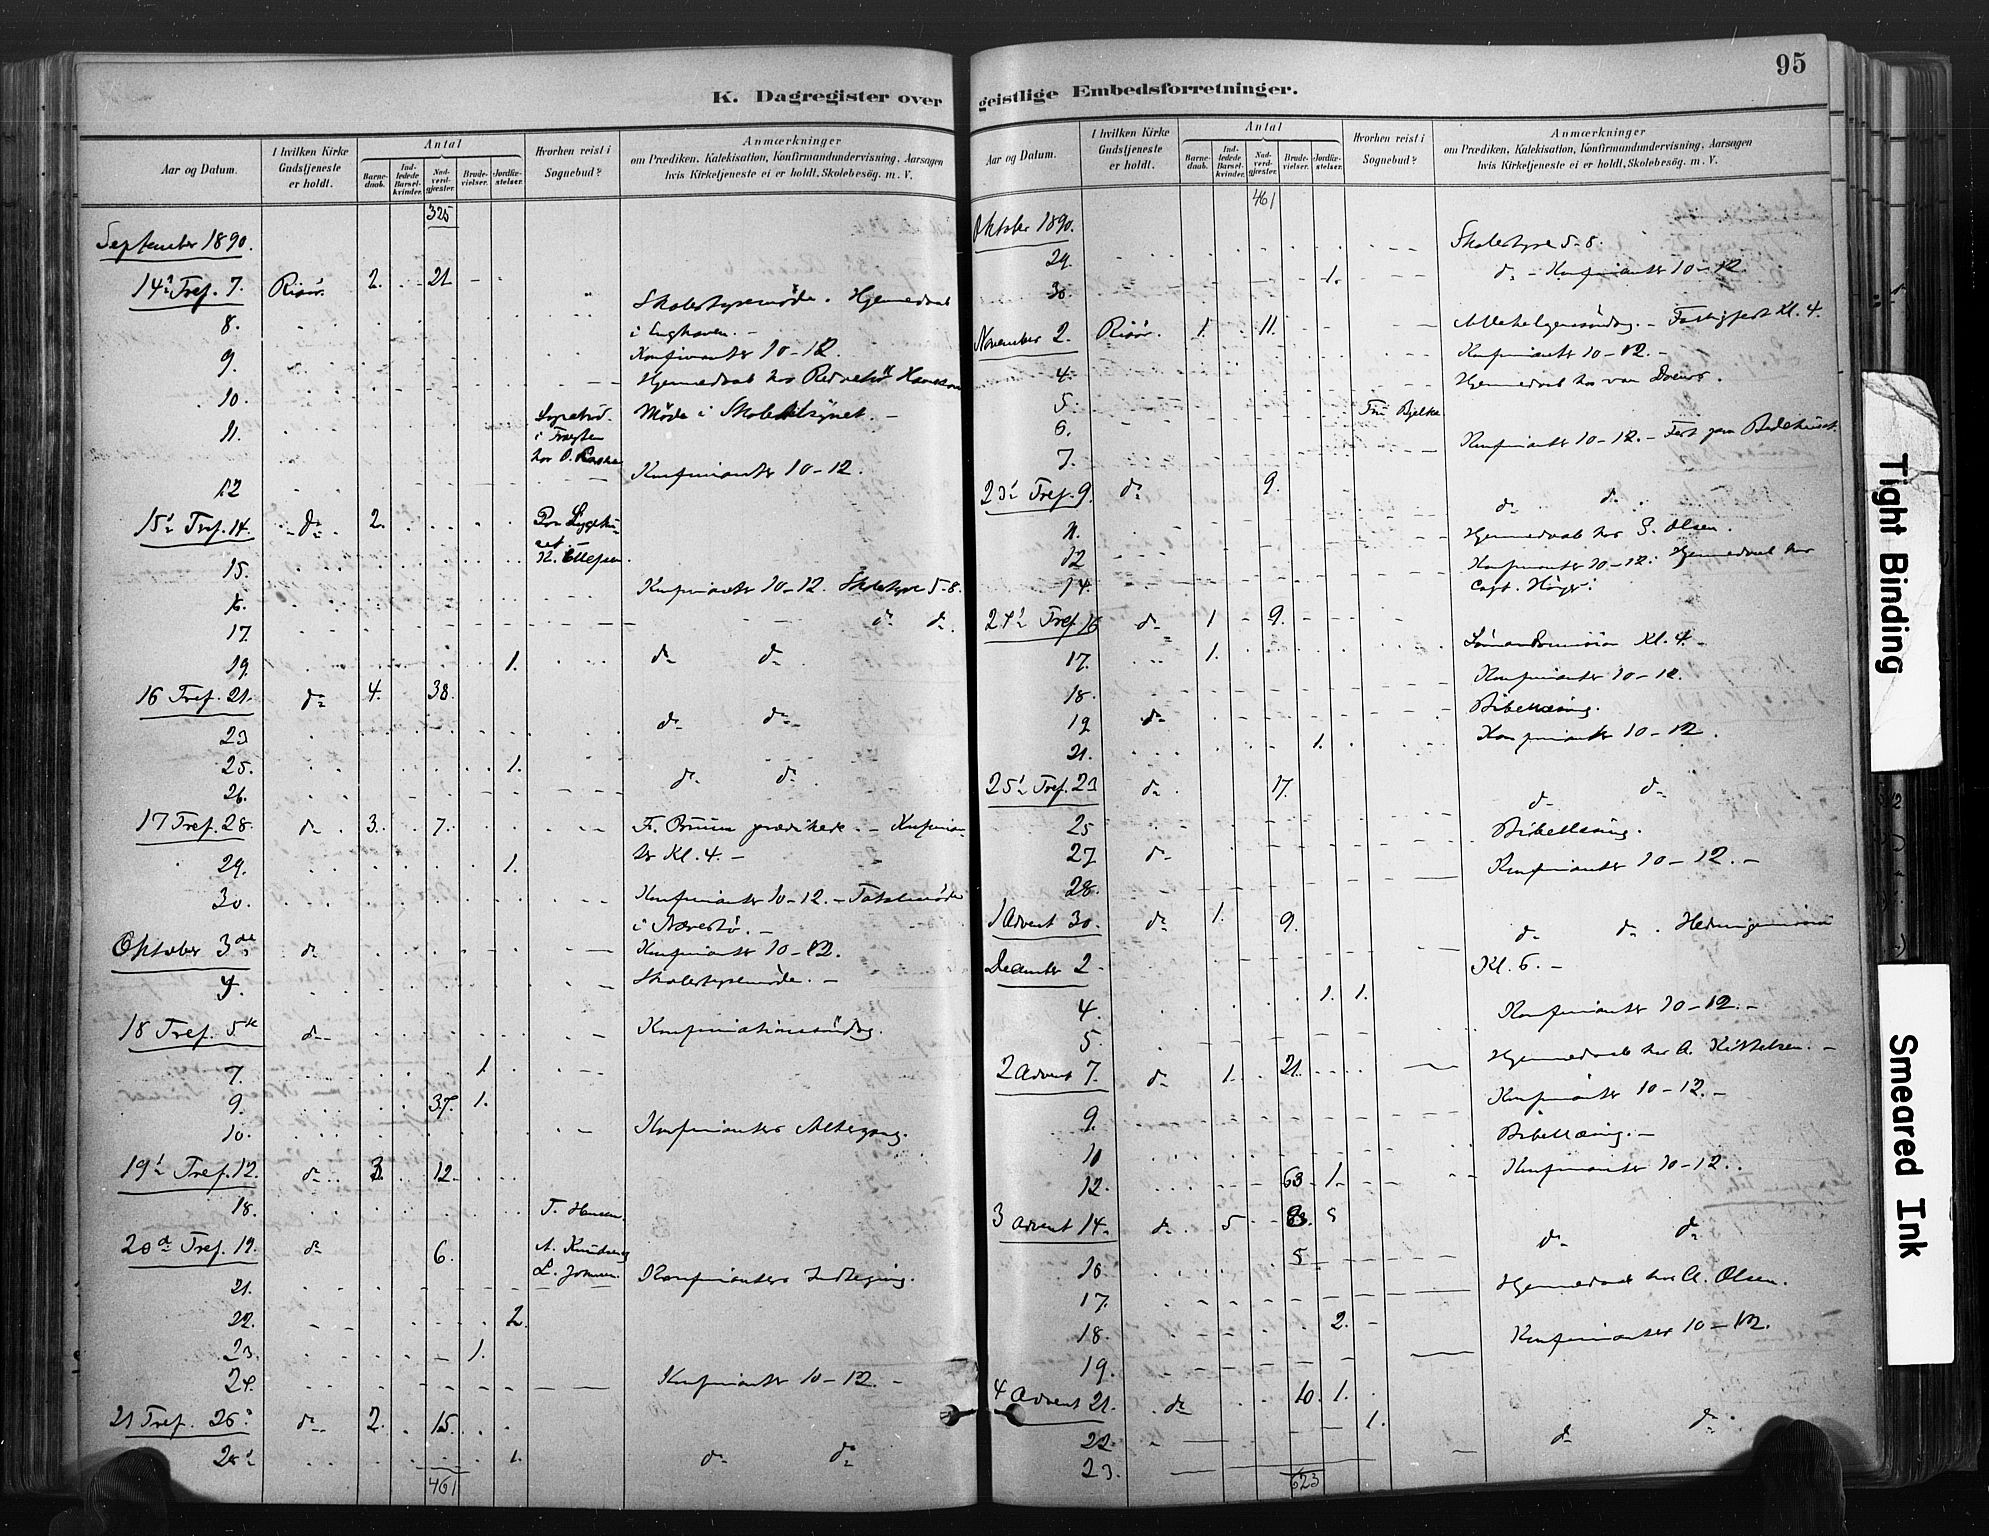 K. Dagregister over
Aar og Datum.
I hvilken Kirke Gudstjeneste er holdt.
Antal
Barnedaab.
Indledede Barselkvinder.
Nadverdgjæster.
Brudevielser.
Jordfæstelser.
Hvorhen reist i Sognebud?
Anmærkninger
om Prædiken, Katekisation, Konfirmandundervisning, Aarsagen
hvis Kirketjeneste ei er holdt, Skolebesög. m. V.
325
September 1890.
14 Tref. 7. Risør. 2. 21
8. Skolestyremøde. Hjemmedaab
i Enghaven. -
9. Konfirmanter 10-12.
10. Hjemmedaab hos
11. Møde i Skoletilsynet. -
hos O.
12 Konfirmanter 10-12.
15 Tref. 14. do 2.
15. K. Ellefsen.
16. Konfirmanter 10-12. Skolestyre 5-8.
17. do do
19. 1. do do
16 Tref. 21. do 4. 38.
23 do do
25. 1.
26. do do
17 Tref. 28. do 3. 7. Fr. Bruun prædikede. - Konfirman-
ter Kl. 4. -
29. 1.
30. Konfirmanter 10-12. -
i
Oktober 3 do Konfirmanter 10-12.
4. Skolestyremøde. -
18 Tref. 5 do Konfirmationssøndag.
7. 1
9. 37. 1.
10. Konfirmanters Altergang.
19 Tref. 12. do 3. 12.
18. T. Hansen.
20 Tref. 19. do 6. A. Knudsen
21. Konfirmanters
22. 2.
23. 1.
24. Konfirmanter 10-12. -
21 Tref. 26 do 2. 15.
28 1. do do
461
95
geistlige Embedsforretninger.
Aar og Datum.
I hvilken Kirke Gudstjeneste er holdt.
Antal
Barnedaab.
Indledede Barselkvinder.
Nadverdgjæster.
Brudevielser.
Jordfæstelser.
Hvorhen reist i Sognebud?
Anmærkninger
om Prædiken, Katekisation, Konfirmandundervisning, Aarsagen
hvis Kirketjeneste ei er holdt, Skolebesög. m. V.
461
Oktober 1890.
29. Skolestyre 5-8.
30. 1. do - Konfirmanter 10-12.
November 2. Risør. 1. 11. Allehelgensøndag. - Kl. 4.
4. Konfirmanter 10-12. -
5. Hjemmedaab hos
6. Fru Bjelke
7. Konfirmanter 10-12. - Fest paa Bedehuset.
23 Tref. 9. do 9.
do do
11. Hjemmedaab hos Olsen.
12 Konfirmanter 10-12. Hjemmedaab hos
14. Capt.
24 Tref. 16 do 1 9.
17. 1. Kl. 4. -
18. Konfirmanter 10-12.
19 do Bibellæsning.
21. 1. Konfirmanter 10-12.
25 Tref. 23 do 17.
25 do do
27 do Bibellæsning.
28. Konfirmanter 10-12. -
1 Advent 30. do 1. 9.
December 2. do do . Hedningemission
Kl. 6. -
4. 1. 1.
5. Konfirmanter 10-12. -
2 Advent 7. do 1. 21. Hjemmedaab hos A. Kittelsen. -
9. Konfirmanter 10-12. -
10 Bibellæsning. -
12. 63 1. Konfirmanter 10-12.
3 Advent 14. do 5
16 5 do do
17. Hjemmedaab hos A. Olsen.
18. 2.
19. Konfirmanter 10-12.
4 Advent 21. do 10. 1.
22. 1.
23. do do
623
Tight Binding
Smeared Ink